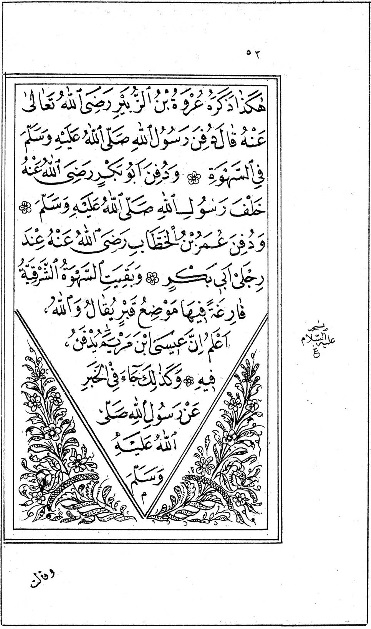 ٥٢
هٰكَذَا ذَكَرَهُ عُرْوَةُ بْنُ الزُّبَيْرِ رَضِيَ اللهُ تَعَالٰى
عَنْهُ قَالَ دُفِنَ رَسُولُ اللهِ صَلَّى اللهُ عَلَيْهِ وَسَلَّمَ
فِي السَّهْوَةِ ۞ وَدُفِنَ أَبُو بَكْرٍ رَضِيَ اللهُ عَنْهُ
خَلْفَ رَسُولِ اللهِ صَلَّى اللهُ عَلَيْهِ وَسَلَّمَ ۞
وَدُفِنَ عُمَرُ بْنُ الْخَطَّابِ رَضِيَ اللهُ عَنْهُ عِنْدَ
رِجْلَيْ أَبِي بَكْرٍ ۞ وَبَقِيَتِ السَّهْوَةُ الشَّرْقِيَّةُ
فَارِغَةً فِيهَا مَوْضِعُ قَبْرٍ يُقَالُ وَاللهُ
أَعْلَمُ إِنَّ عِيسَى ابْنَ مَرْيَمَ يُدْفَنُ
فِيهِ ۞ وَكَذٰلِكَ جَاءَ فِي الْخَبَرِ
عَنْ رَسُولِ اللهِ صَلَّى
اللهُ عَلَيْهِ
وَسَلَّمَ
م
عليه السلام
ع
وقالت